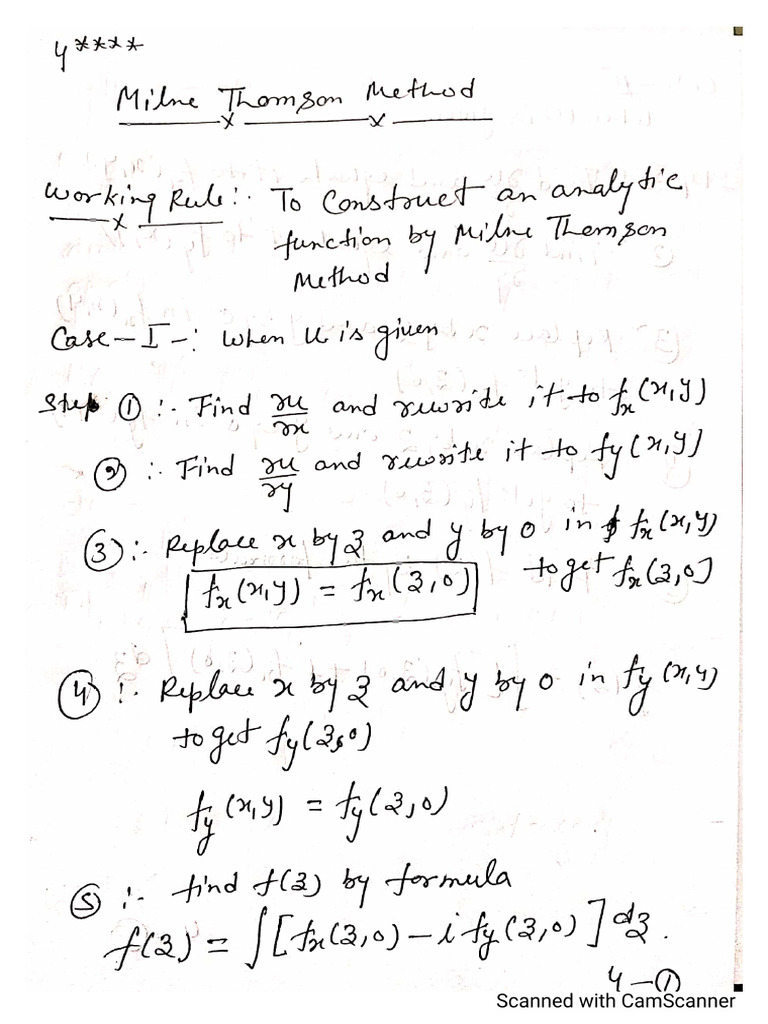 4****
Milne Thomson Method
Working Rule:. To Construct an analytic
function by Milne Thomson
Method
Case-I-: when u is given
Step ① :. Find ∂u/∂x and rewrite it to fx(x,y)
② :. Find ∂u/∂y and rewrite it to fy(x,y)
③ :. Replace x by z and y by 0 in fx(x,y)
to get fx(z,0)
fx(x,y) = fx(z,0)
④ :. Replace x by z and y by 0 in fy(x,y)
to get fy(z,0)
fy(x,y) = fy(z,0)
⑤ :. find f(z) by formula
f(z) = ∫[fx(z,0) - i fy(z,0)]dz.
4-①
Scanned with CamScanner